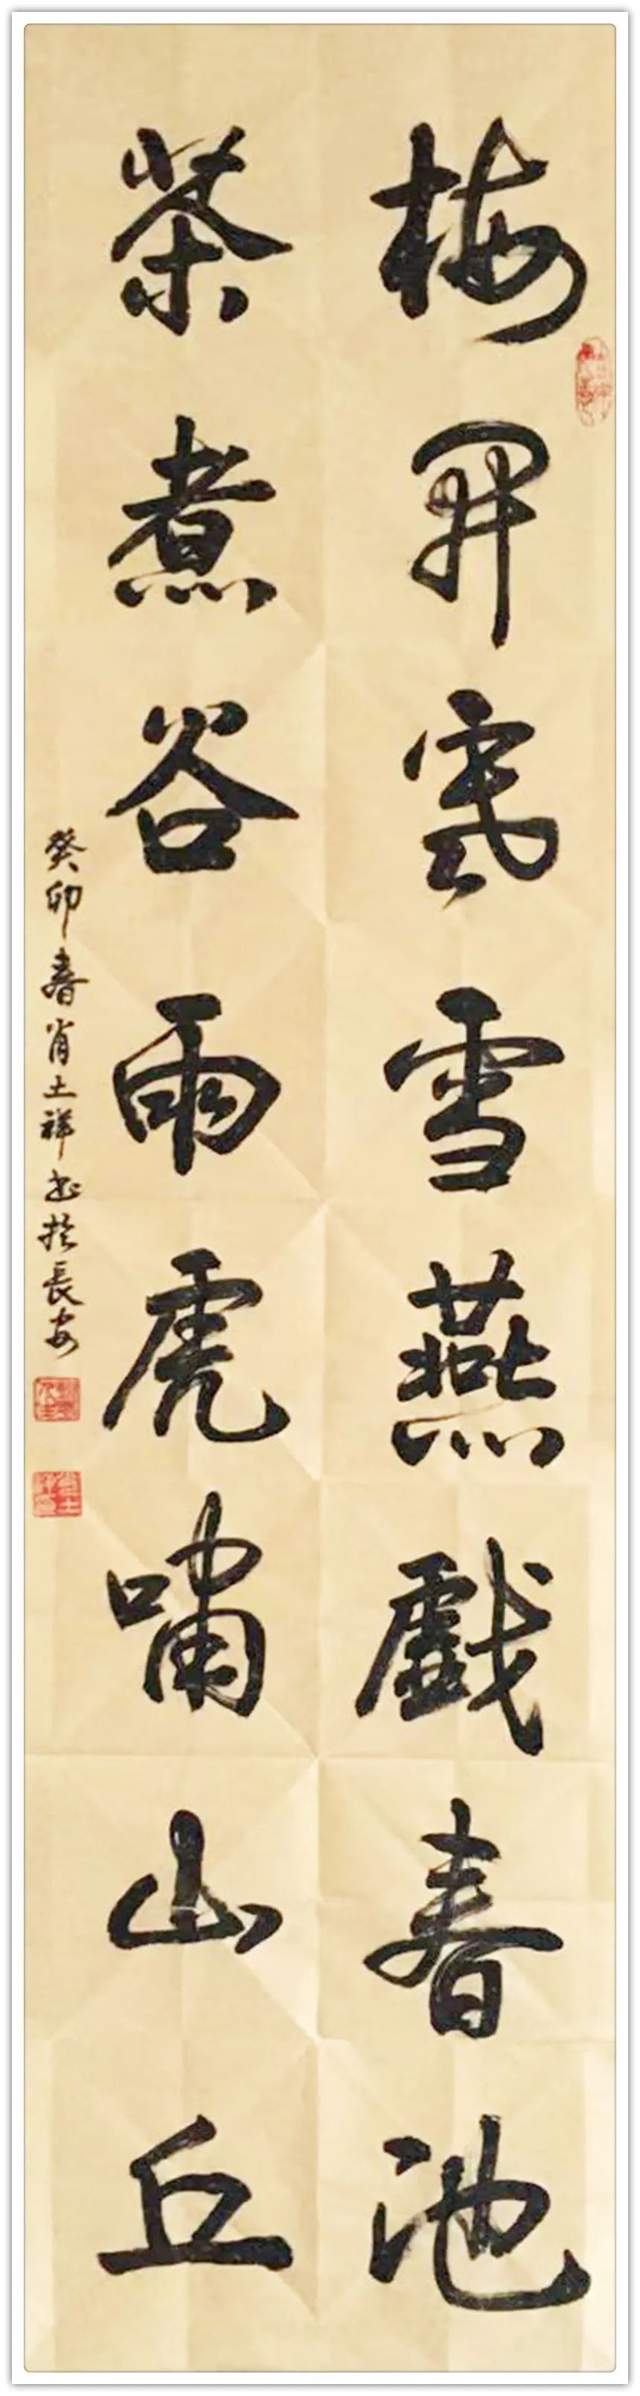 梅開寒雪燕戲春池
茶煮谷雨虎嘯山丘
癸卯春肖土祥书於長安